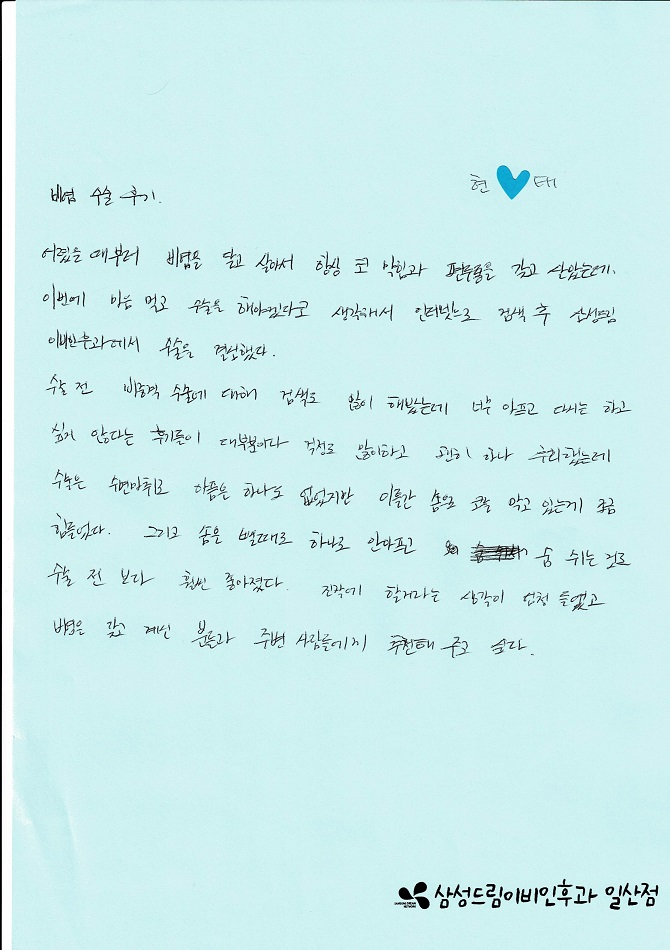 현 태
비염 수술 후기.
어렸을 때부터 비염을 달고 살아서 항상 코 막힘과 편두통을 갖고 살았는데.
이번에 마음 먹고 수술을 해야겠다고 생각해서 인터넷으로 검색 후 삼성드림
이비인후과에서 수술을 결심했다.
수술 전 비중격 수술에 대해 검색도 많이 해봤는데 너무 아프고 다시는 하고
싶지 않다는 후기들이 대부분이라 걱정도 많이하고 괜히 하나 후회했는데
수술은 수면마취로 아픔은 하나도 없었지만 이틀간 솜으로 코를 막고 있는게 조금
힘들었다. 그리고 솜은 뺄때도 하나도 안아프고 숨 쉬는 것도
수술 전 보다 훨씬 좋아졌다. 진작에 할거라는 생각이 엄청 들었고
비염을 갖고 계신 분들과 주변 사람들에게 추천해 주고 싶다.
삼성드림이비인후과 일산점